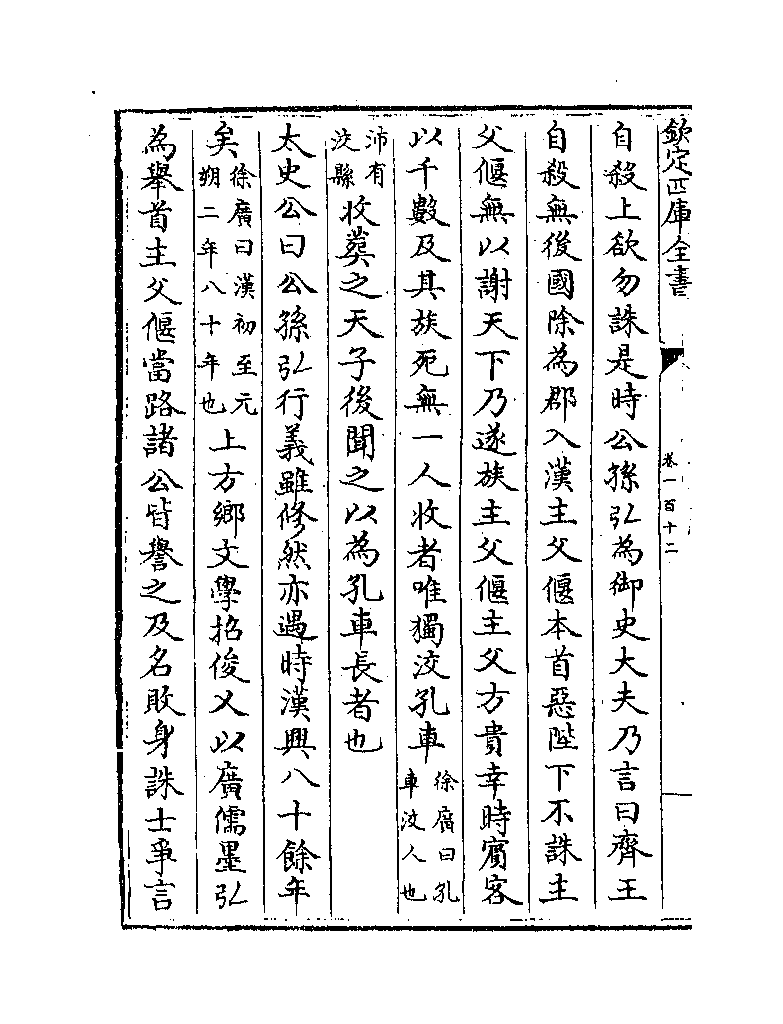 欽定四庫全書
卷一百十二
自殺上欲勿誅是時公孫弘為御史大夫乃言曰齊王
自殺無後國除為郡入漢主父偃本首惡陛下不誅主
父偃無以謝天下乃遂族主父偃主父方貴幸時賓客
以千數及其族死無一人收者唯獨洨孔車徐廣曰孔車洨人也
沛有洨縣收葬之天子後聞之以為孔車長者也
太史公曰公孫弘行義雖修然亦遇時漢興八十餘年
矣徐廣曰漢初至元朔二年八十年也上方鄉文學招俊乂以廣儒墨弘
為舉首主父偃當路諸公皆譽之及名敗身誅士爭言